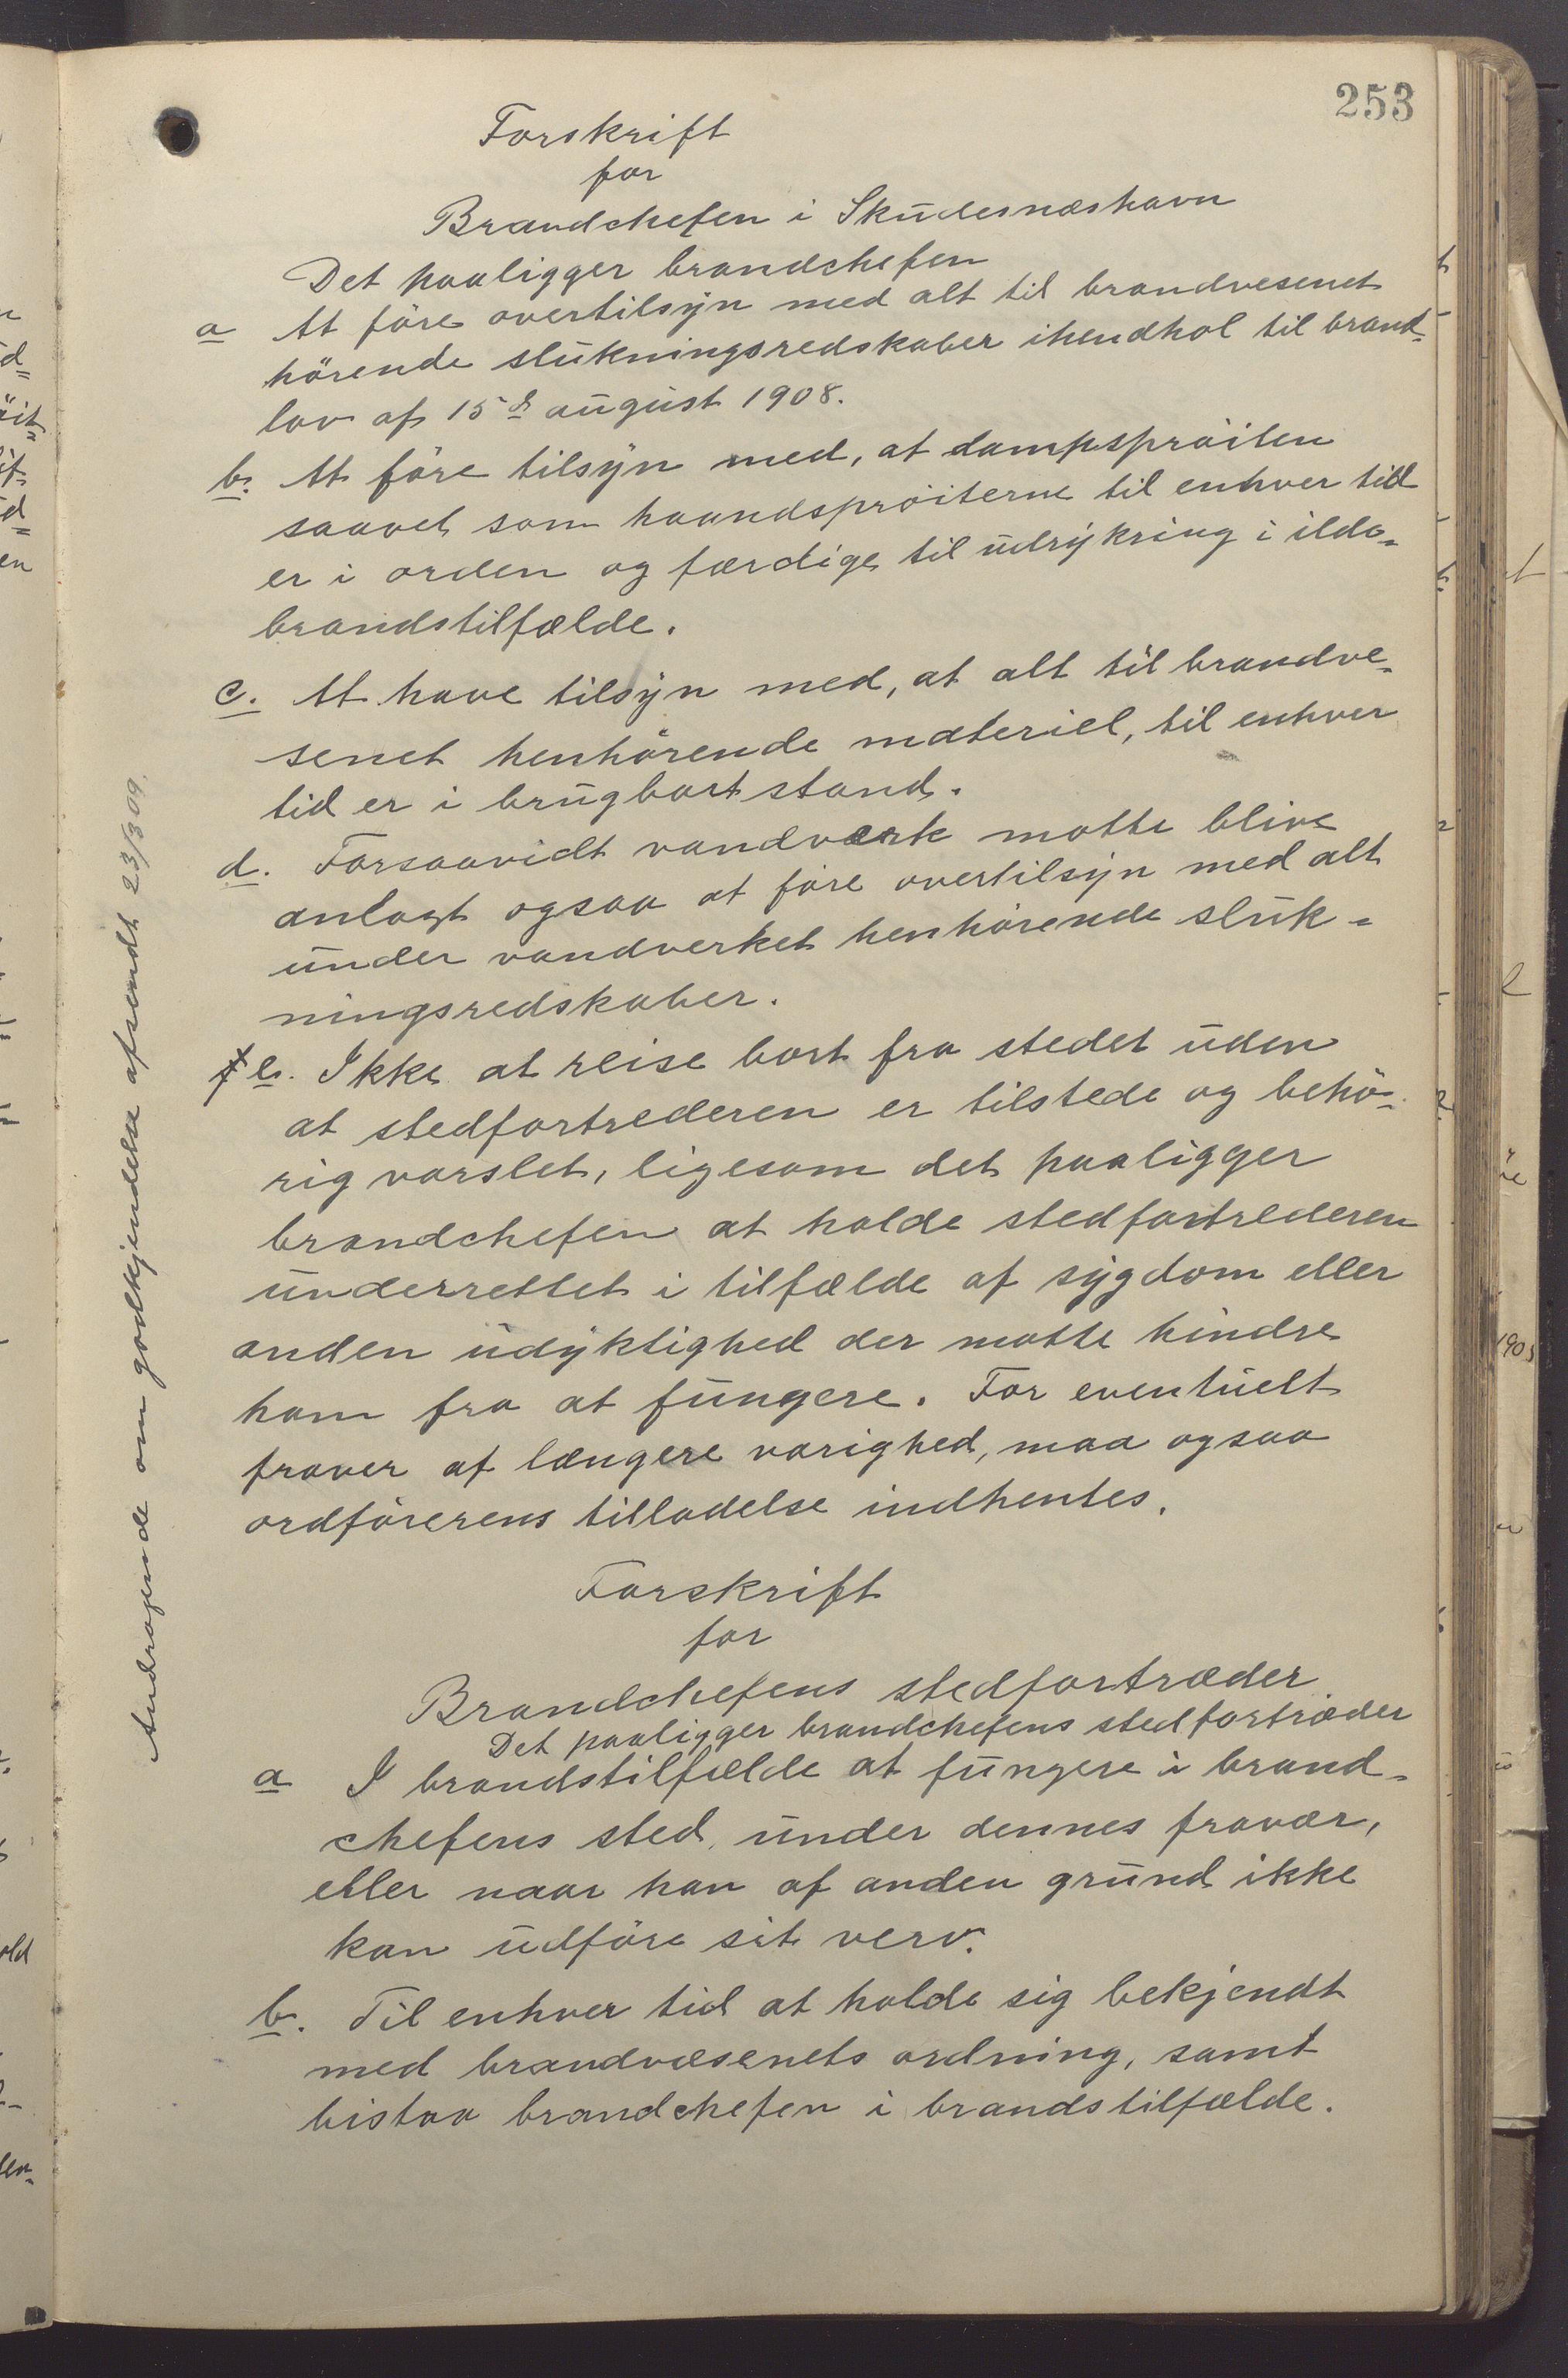 253
Forskrift
for
Brandchefen i Skudesnæshavn
Det paaligger brandchefen
a At före overtilsyn med alt til brandvesenet
hörende slukningsredskaber ihendhol til brand-
lov af 15de august 1908.
b. At före tilsyn med, at dampspröiten
saavel som haandspröiterne til enhver tid
er i orden og færdige til udrykning i ilds-
brandstilfælde.
c. At have tilsyn med, at alt til brandve-
senet henhörende materiel, til enhver
tid er i brugbart stand.
d. Forsaavidt vandværk motte blive
anlagt ogsaa at före overtilsyn med alt
under vandverket henhörende sluk-
ningsredskaber.
e. Ikke at reise bort fra stedet uden
at stedfortrederen er tilstede og behö-
rig varslet, ligesom det paaligger
brandchefen at holde stedfortrederen
underrettet i tilfælde af sygdom eller
anden udyktighed der motte hindre
ham fra at fungere. For eventuelt
fraver af længere varighed, maa ogsaa
ordförerens tilladelse indhentes.
Forskrift
for
Brandchefens stedfortræder
Det paaligger brandchefens stedfortræder
a I brandstilfælde at fungere i brand-
chefens sted, under dennes fravær,
eller naar han af anden grund ikke
kan udföre sit verv.
b. Til enhver tid at holde sig bekjendt
med brandvæsenets ordning, samt
bistaa brandchefen i brandstilfælde.
Andragende om godkjendelse afsendt 23/3 09.